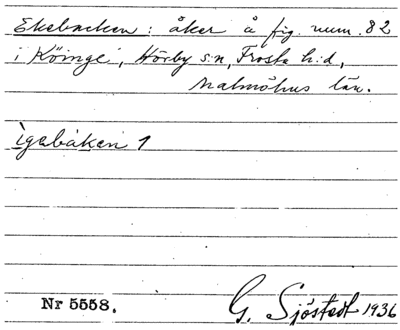 Ekebacken: åker å fig. num. 82
i Köinge, Hörby s:n, Frosta h:d,
Malmöhus län.
igabakan 1
Nr 5558.
G. Sjöstedt 1936